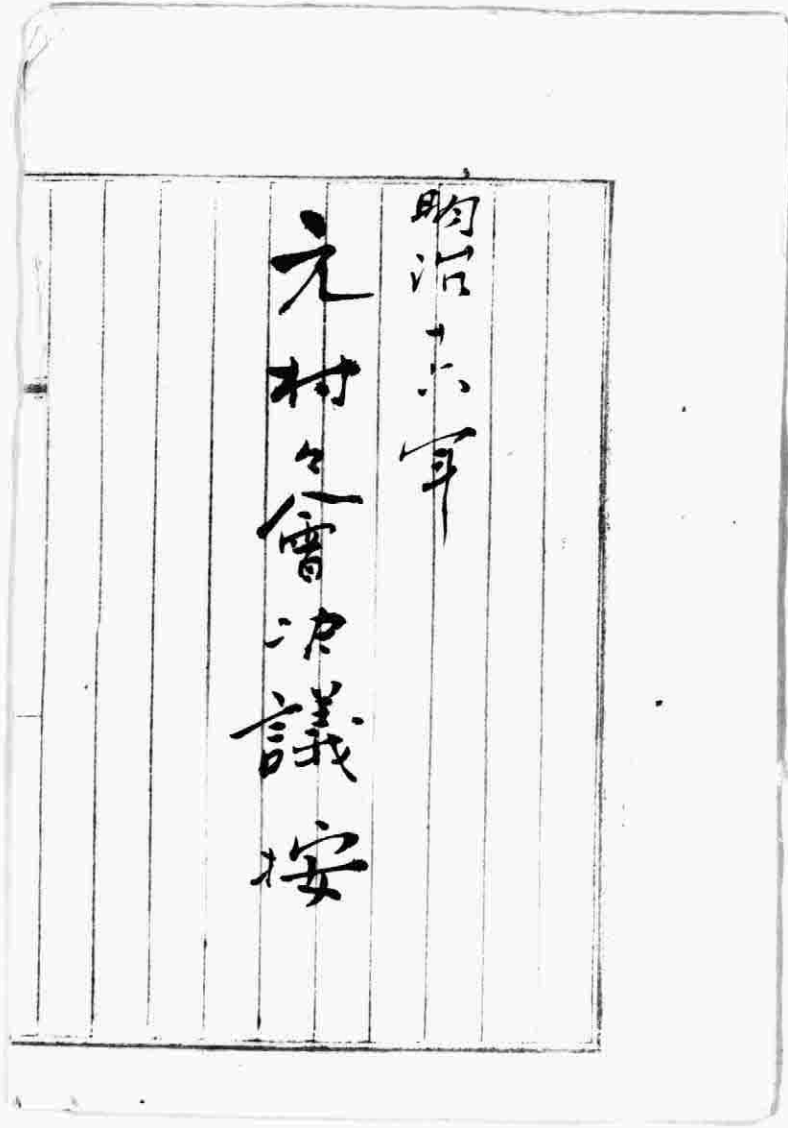 明治十六年
元村々會决議按